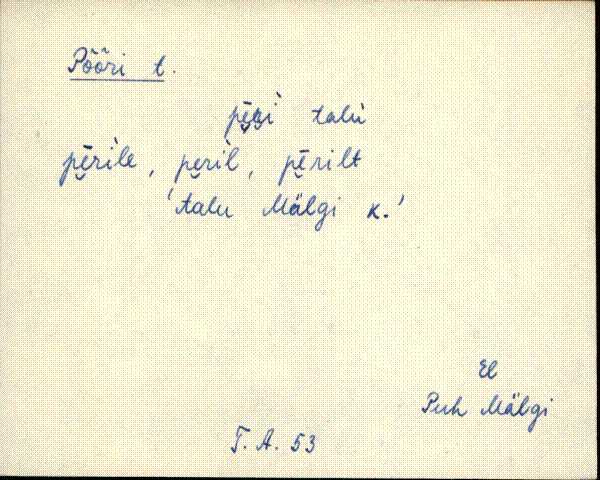 Pööri t.
pē̮rì talù
pē̮rìle, pe̮rìl, pē̮rilt
'talu Mälgi k.'
El
Puh Mälgi
T. A. 53